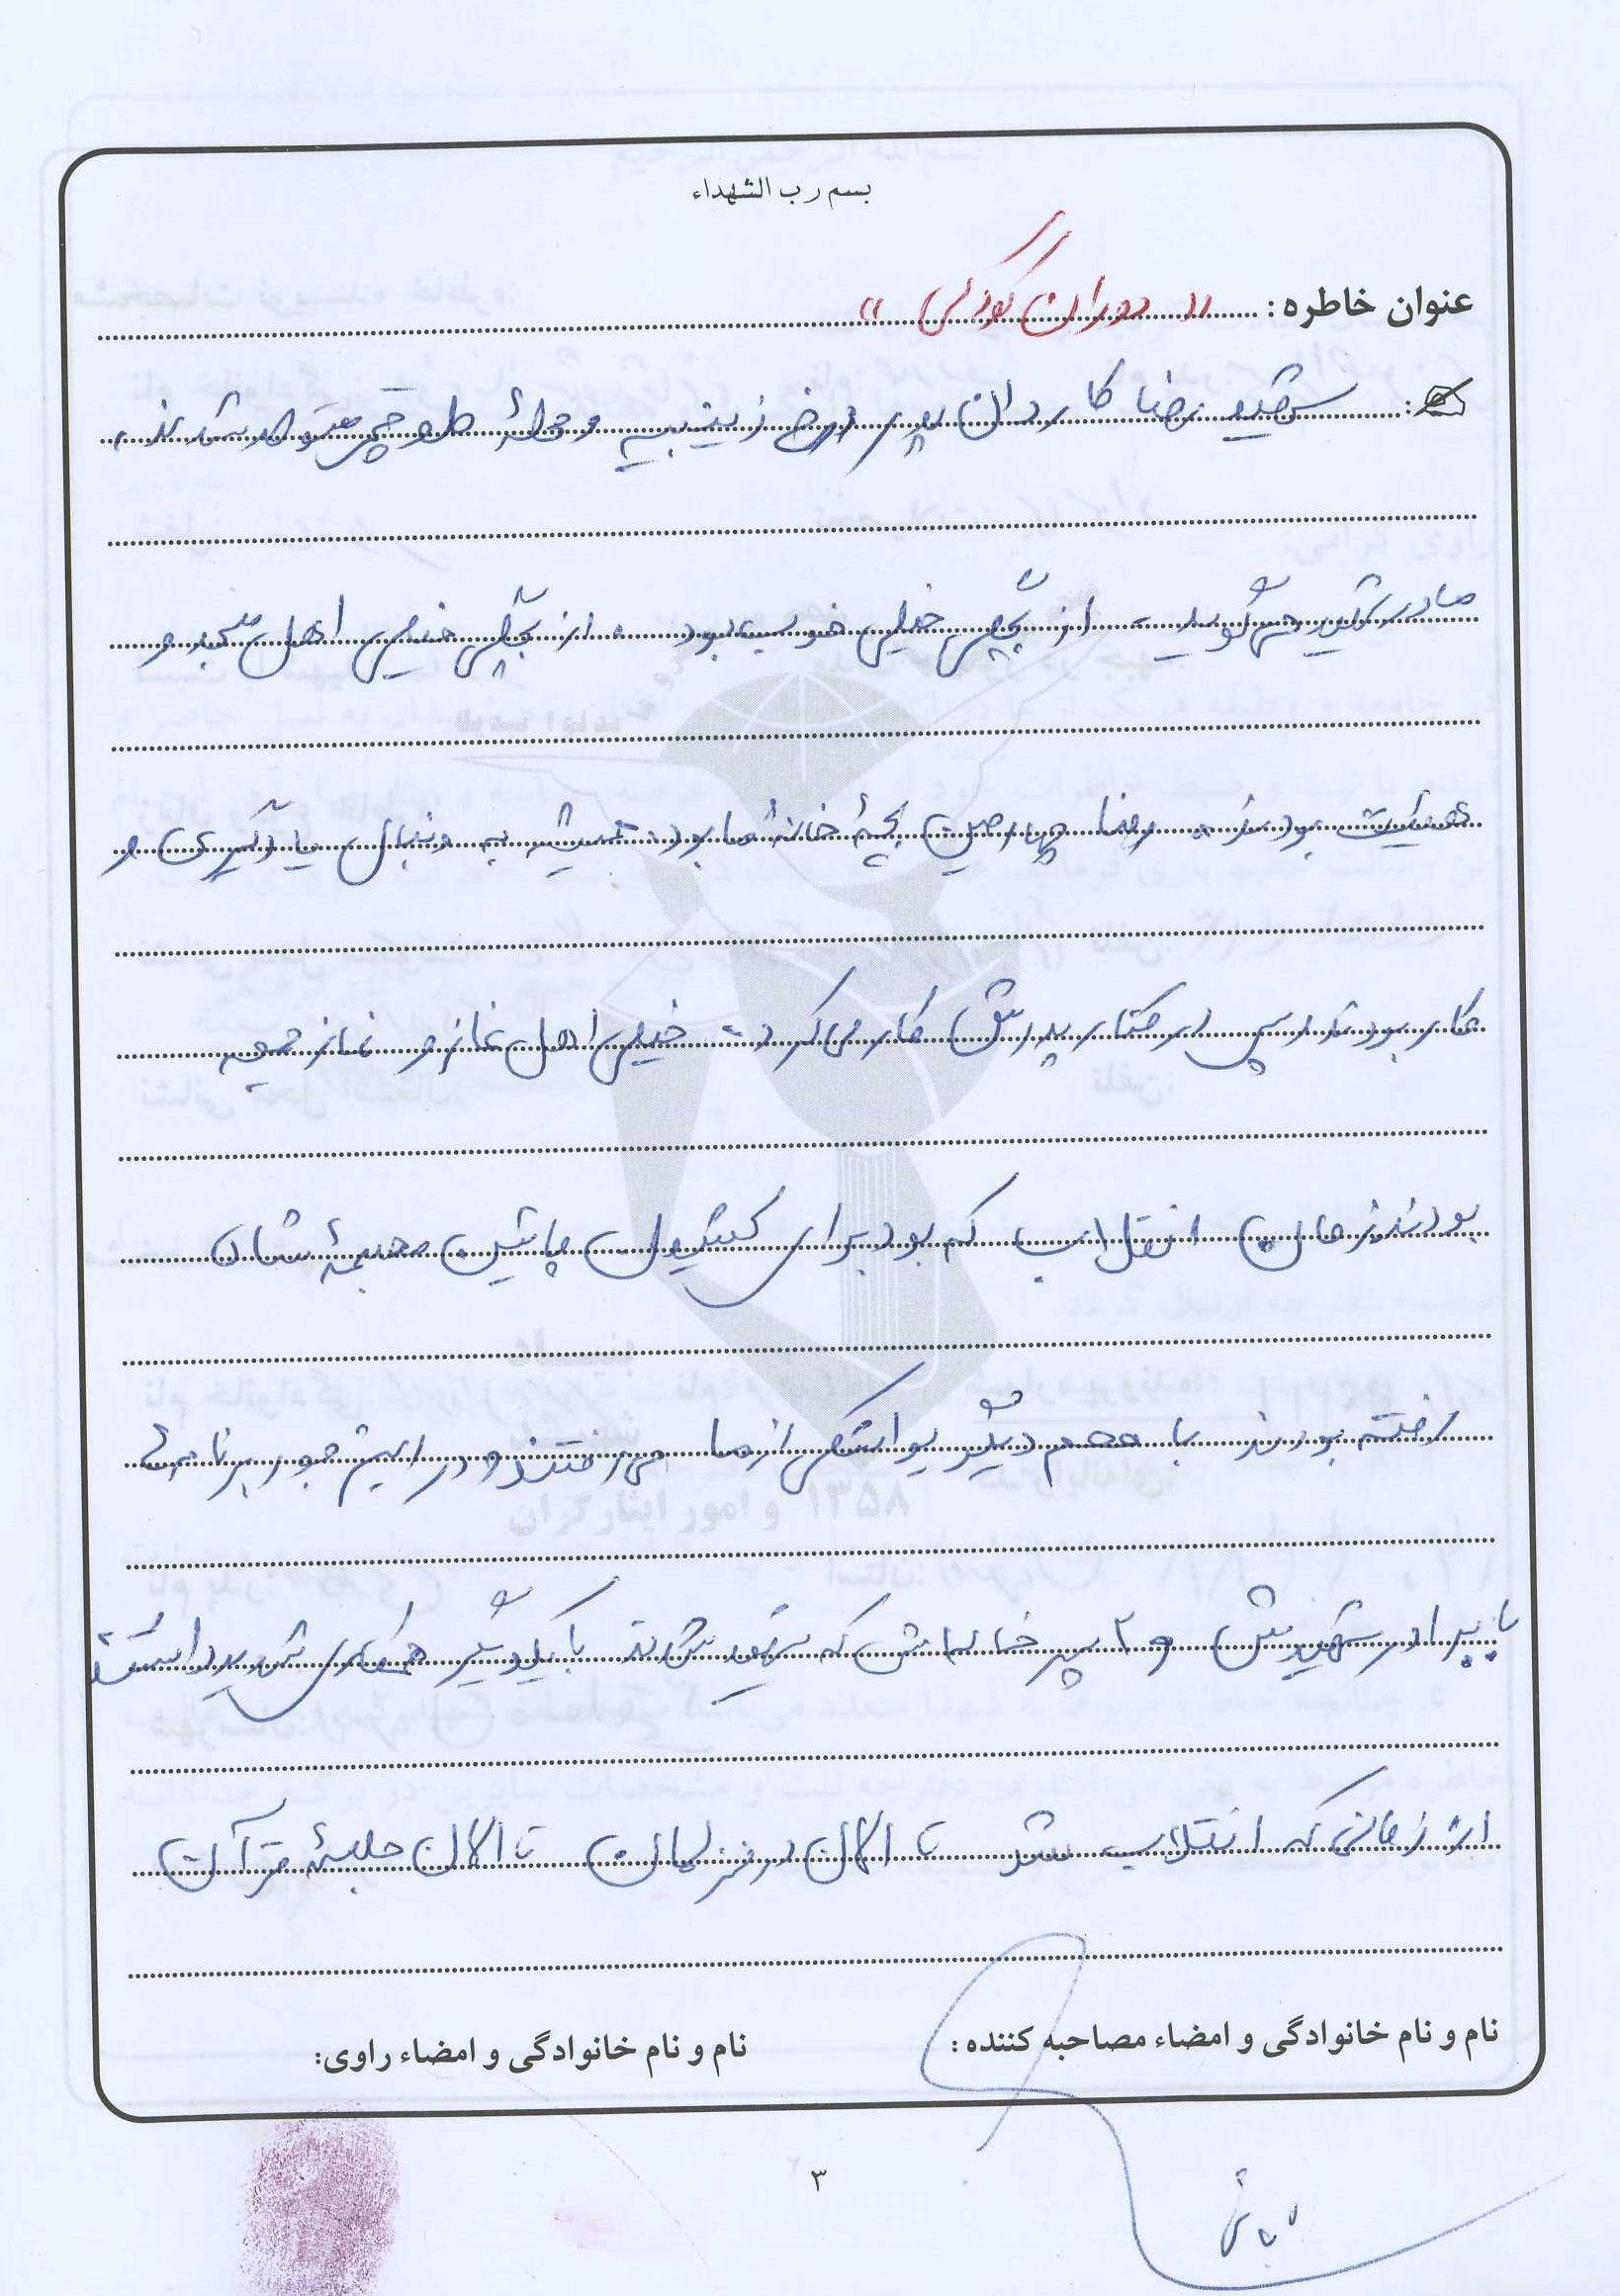 بسم رب الشهداء
عنوان خاطره: « دوران کودکی »
شهید رضا کاردان پور در زینبیه و محلۀ متولد شدند.
مادر شهید می گوید از بچگی خیلی خوب بود. از بچگی خیلی اهل مسجد و
هیئت بودند. رضا چهارمین بچۀ خانۀ ما بود. همیشه به دنبال یادگیری و
کار بودند در کنار پدرش کار می کرد. خیلی اهل نماز و نماز جمعه
بودند زمان انقلاب که بود برای پائین مجسمۀ شان
رفته بودند با هم دیگر یواشکی از ما می رفتند و در این جور برنامه
با برادر شهیدش و ۲ پسر خاله اش که شهید شدند با یکدیگر همکاری شدید داشتند
از زمانی که انقلاب شد تا الان در منزلمان تا الان جلسۀ قرآن
نام و نام خانوادگی و امضاء مصاحبه کننده:
نام و نام خانوادگی و امضاء راوی:
۳